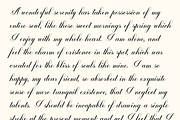 A wonderful serenity has taken possession of my
entire soul, like these sweet mornings of spring which
I enjoy with my whole heart. I am alone, and
feel the charm of existence in this spot, which was
created for the bliss of souls like mine. I am so
happy, my dear friend, so absorbed in the exquisite
sense of mere tranquil existence, that I neglect my
talents. I should be incapable of drawing a single
stroke at the present moment; and yet I feel that I